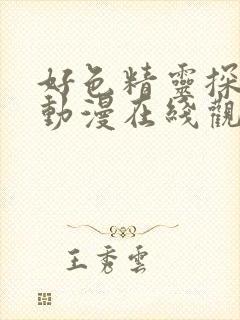 好色精靈探
動漫在綫觀
王秀雲